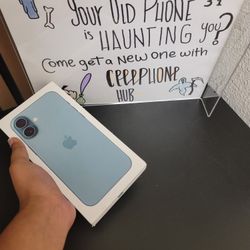 Your Old Phone
is HAUNTING you?
Come get a New one with
CEEEPHONE
HUB